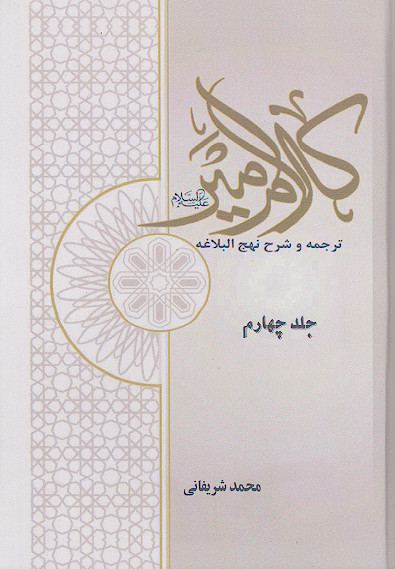 کلام امیر
علیه‌السلام
ترجمه و شرح نهج البلاغه
جلد چهارم
محمد شریفانی